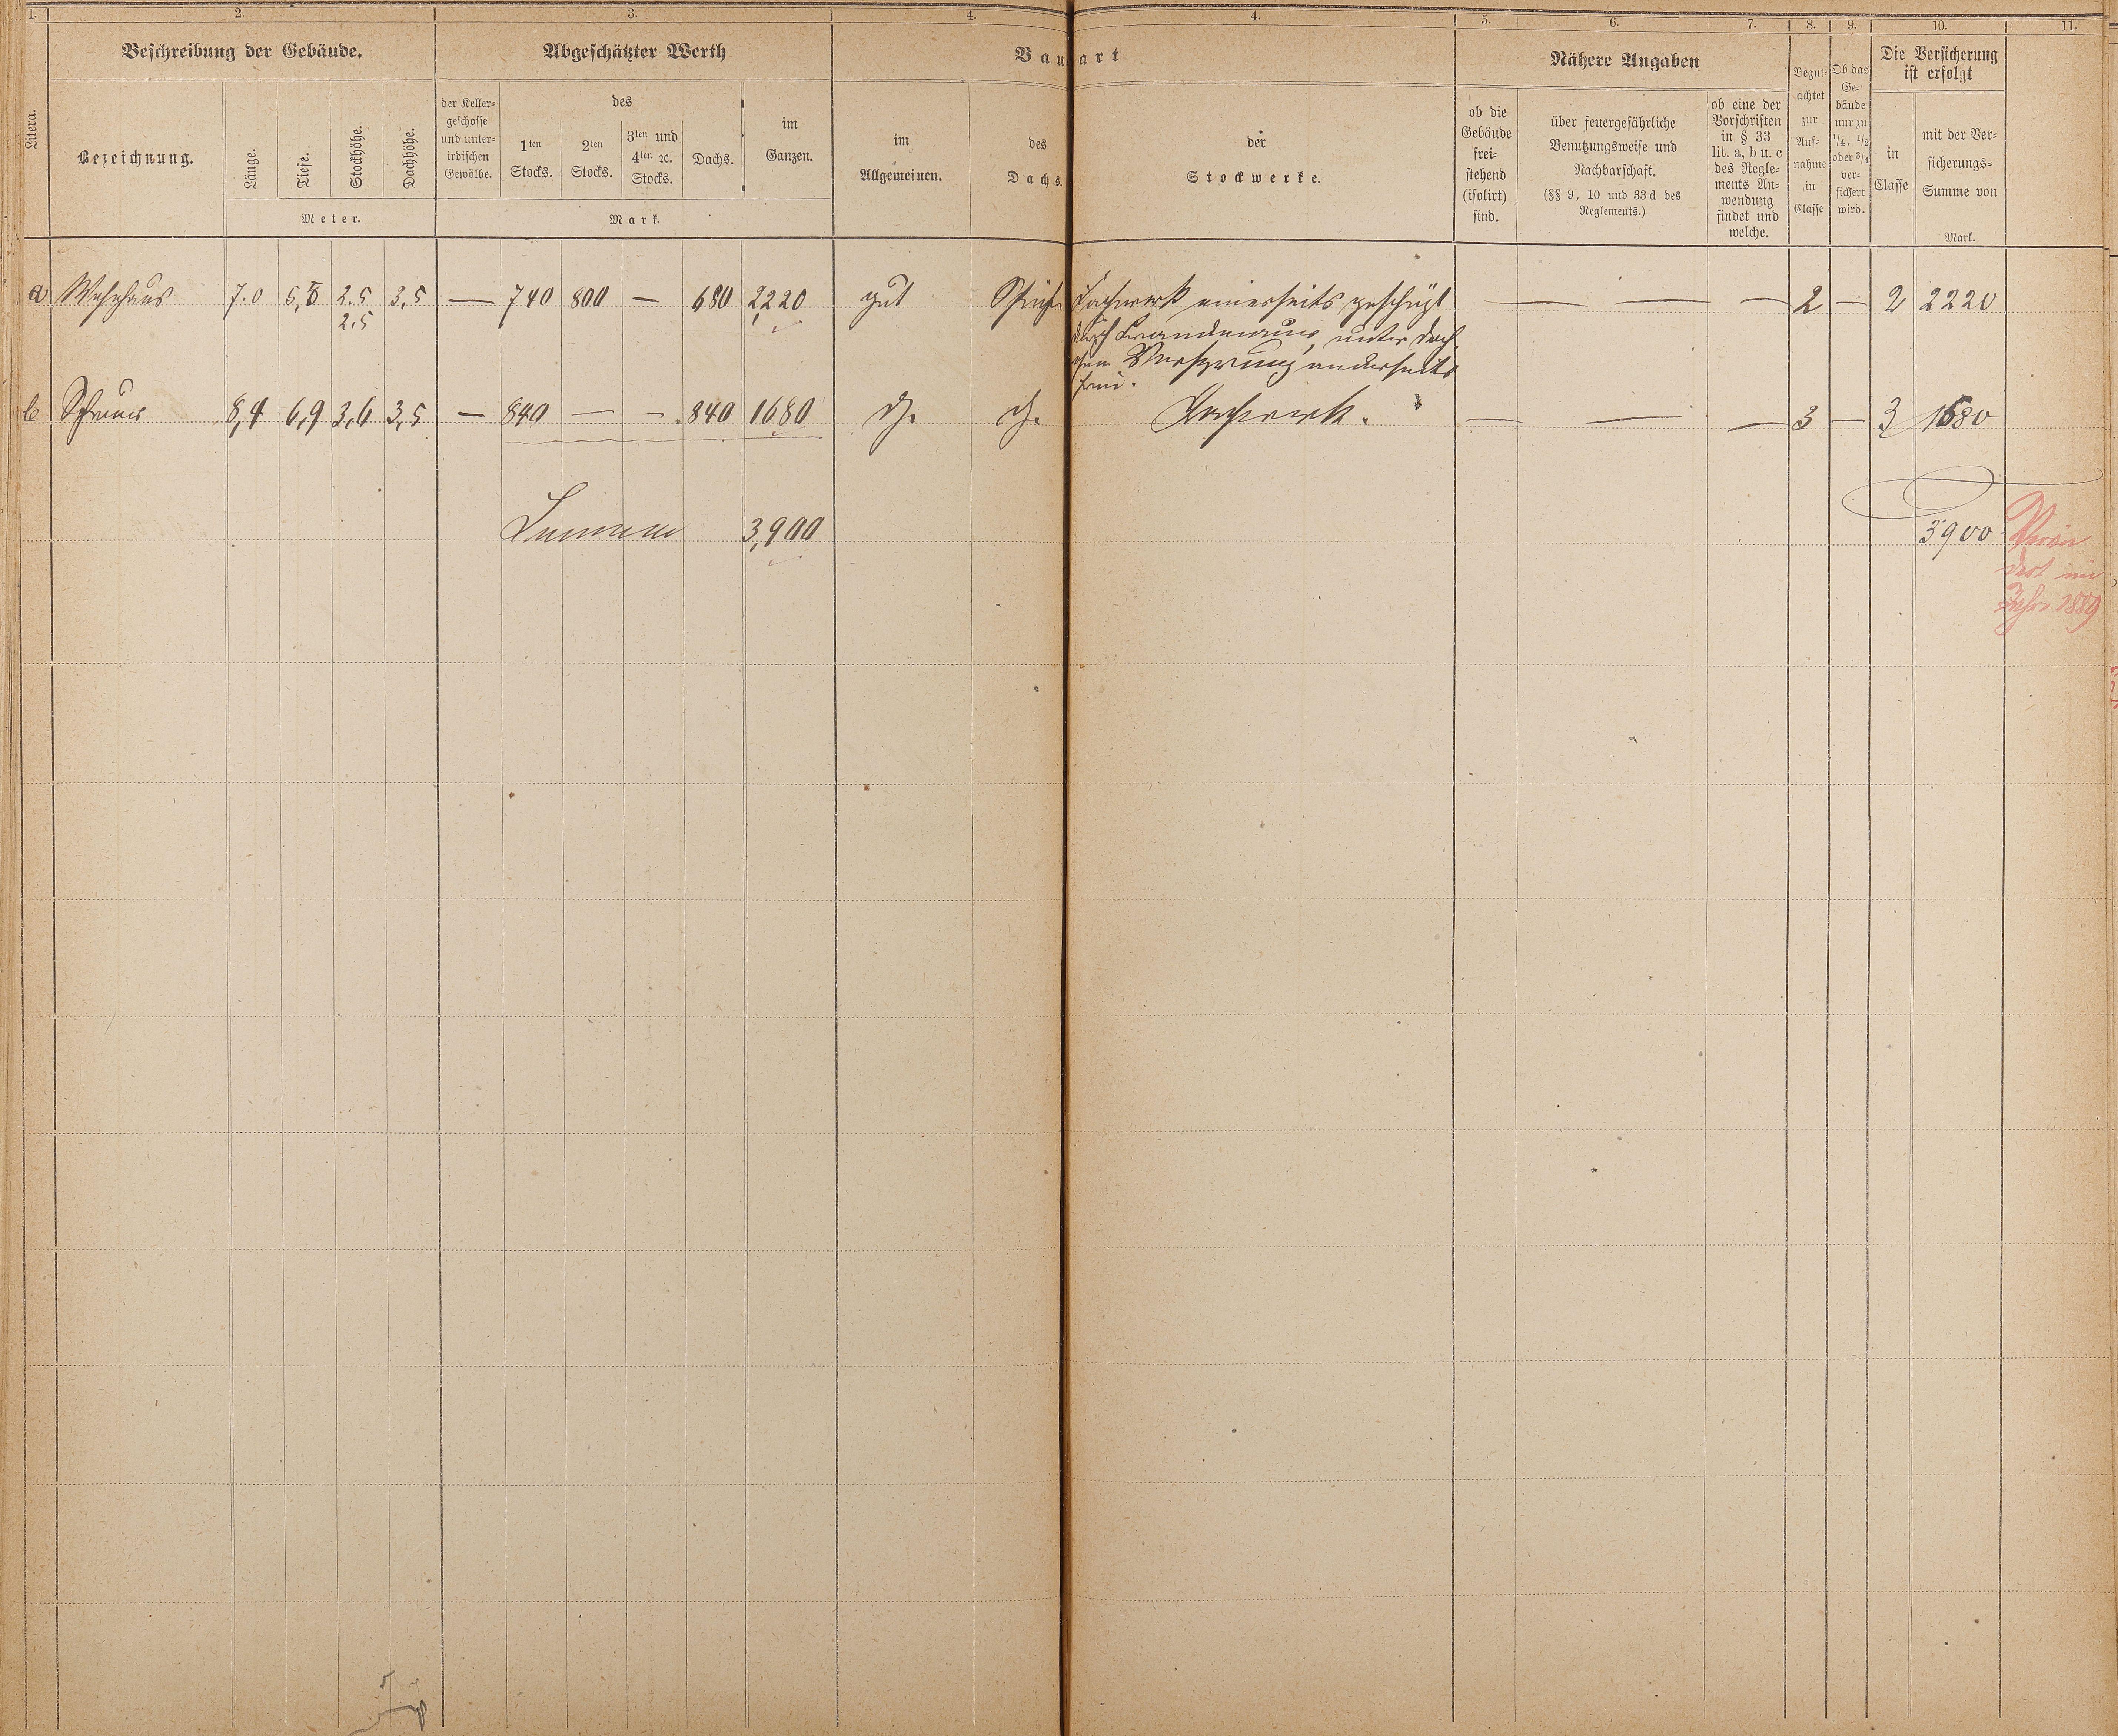 1. 2. 3. 4. 4. 5. 6. 7. 8. 9. 10. 11.
Beschreibung der Gebäude. Abgeschätzter Werth Bauart Nähere Angaben Die Versicherung
ist erfolgt
Litera.
Bezeichnung.
Länge.
Tiefe.
Stockhöhe.
Dachhöhe.
Meter.
der Keller-
geschosse
und unter-
irdischen
Gewölbe.
des
1ten
Stocks.
2ten
Stocks.
3ten und
4ten ꝛc.
Stocks.
Dachs.
im
Ganzen.
Mark.
im
Allgemeinen.
des
Dachs.
der
Stockwerke.
ob die
Gebäude
frei-
stehend
(isolirt)
sind.
über feuergefährliche
Benutzungsweise und
Nachbarschaft.
(§§ 9, 10 und 33 d des
Reglements.)
ob eine der
Vorschriften
in § 33
lit. a, b u. c
des Regle-
ments An-
wendung
findet und
welche.
Begut-
achtet
zur
Auf-
nahme
in
Classe
Ob das
Ge-
bäude
nur zu
1/4, 1/2
oder 3/4
ver-
sichert
wird.
in
Classe
mit der Ver-
sicherungs-
Summe von
Mark.
a Wohnhaus 7.0 5,8 2.5 3,5 — 740 800 — 680 2220 gut Fachwerk einerseits geschützt — — — 2 — 2 2220
2.5
durch Brandmauer, unter Dach
Vorsprung anderseits
frei.
b Scheuer 8,4 6,9 3,6 3,5 — 840 — — 840 1680 dh. dh. Fachwerk. — — — 3 — 3 1680
Summa 3,900 3900
Verän
dert im
Jahre 1889